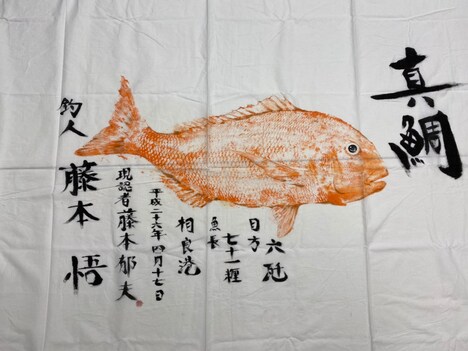 真鯛
目方 六瓩
魚長 七十一糎
相良港
平成二十六年四月十七日
現認者 藤本郁夫
釣人 藤本悟